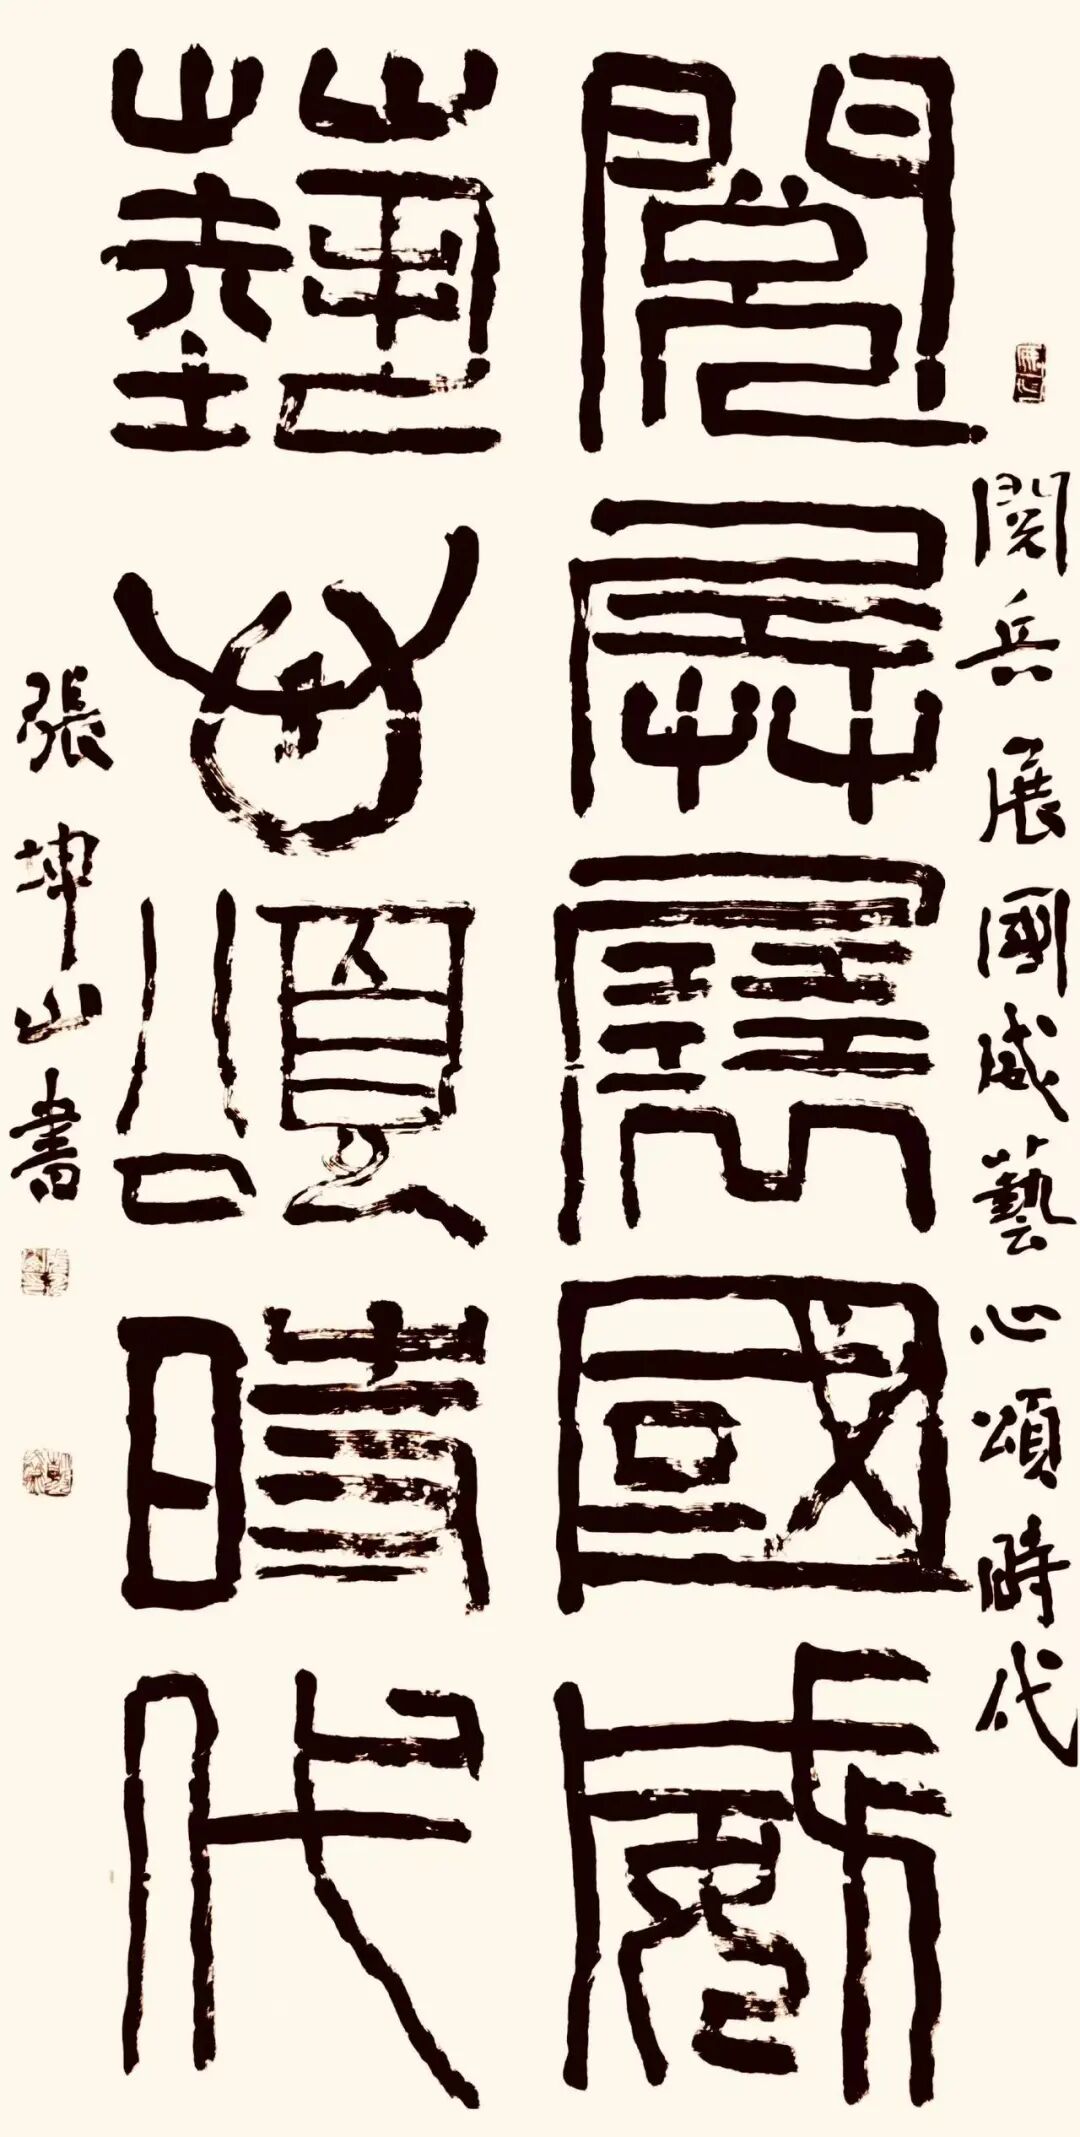 閱兵展國威藝心頌時代
閱兵展國威
藝心頌時代
張坤山書